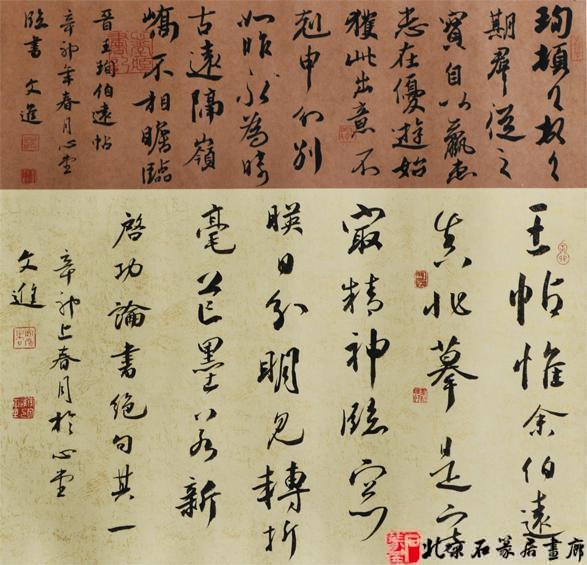 珣頓首頓首
期群從之
寶自以羸患
志在優遊始
獲此出意不
剋申分別
如昨永為疇
古遠隔嶺
嶠不相瞻臨
晉王珣伯遠帖
辛卯年春月心堂
臨書 文進
王帖惟余伯遠
真非摹是寫
最精神臨窗
映日分明見轉折
毫芒墨若新
啓功論書絕句其一
辛卯上春月於心堂
文進
北京石篆居畫廊